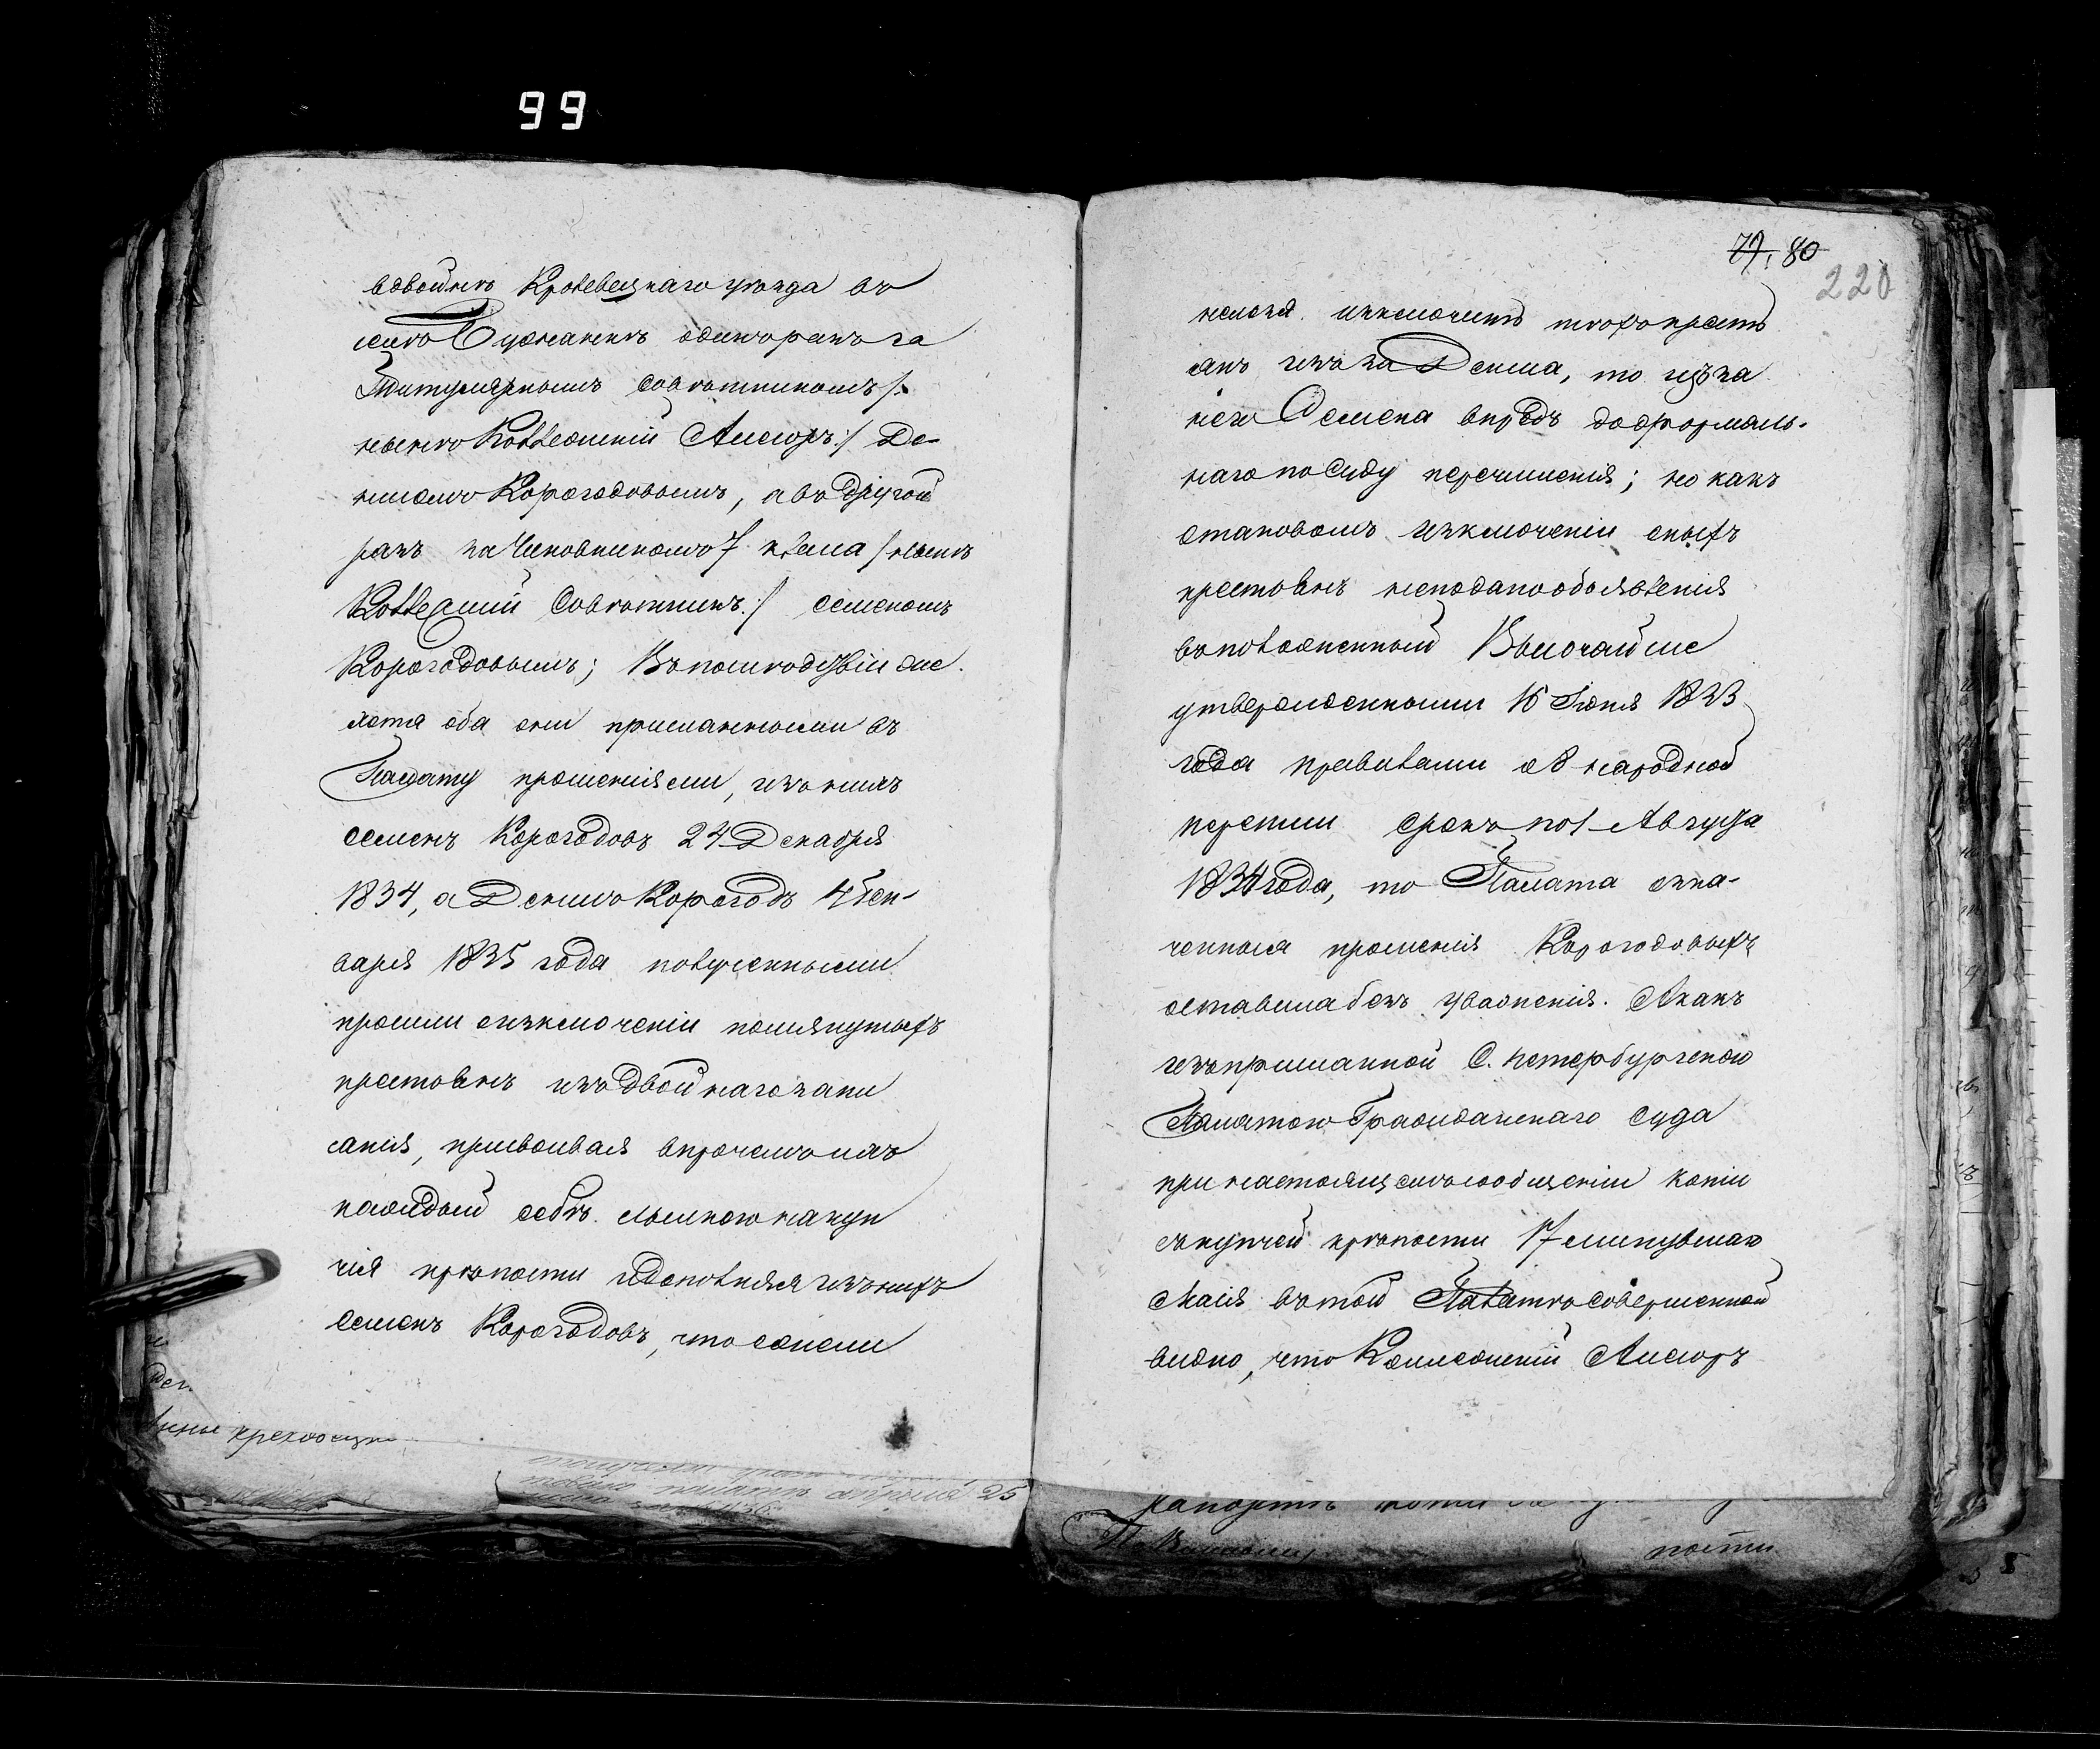 99
вдвойнѣ Кролевецкаго уѣзда въ
селѣ Бужанкѣ одинъ разъ за
Титулярнымъ Совѣтникомъ /:
нынѣ Коллежскій Асесоръ:/ Де-
нисомъ Корогодовымъ, а въ другой
разъ за Чиновникомъ 7 класа /:нынѣ
Коллежскій Совѣтникъ:/ Семеномъ
Корогодовымъ; Въ послѣдствіи же
хотя оба они присланными въ
Палату прошеніями, изъ нихъ
Семенъ Корогодовъ 24 Декабря
1834, а Денисъ Корогодъ 4 Ген-
варя 1835 года полученными
просили о изключеніи помянутыхъ
крестьянъ изъ двойнаго запи
санія, присвоивая впрочемъ ихъ
каждый себѣ силою на куп
чія крѣпости и дополняя изъ нихъ
Семенъ Корогодовъ, что если
79. 80
220
нельзя изключить тѣхъ кресть
янъ изъ за Дениса, то изъ за
него Семена впредь до формаль-
наго по Суду перечисленія; но какъ
о таковомъ изключеніи оныхъ
крестьянъ не подано объявленія
въ положенный Высочайше
утвержденными 16 Іюня 1833
года правилами о 8 народной
переписи срокъ по 1 Августа
1834 года, то Палата озна-
ченныя прошенія Корогодовыхъ
оставила безъ уваженія. А какъ
изъ присланной С. Петербургскою
Палатою Гражданскаго Суда
при настоящемъ сообщеніи копіи
съ купчей крѣпости 17 минувшаго
Маія въ той Палатѣ совершенной
видно, что Коллежскій Асесоръ
25
рапортъ
пости